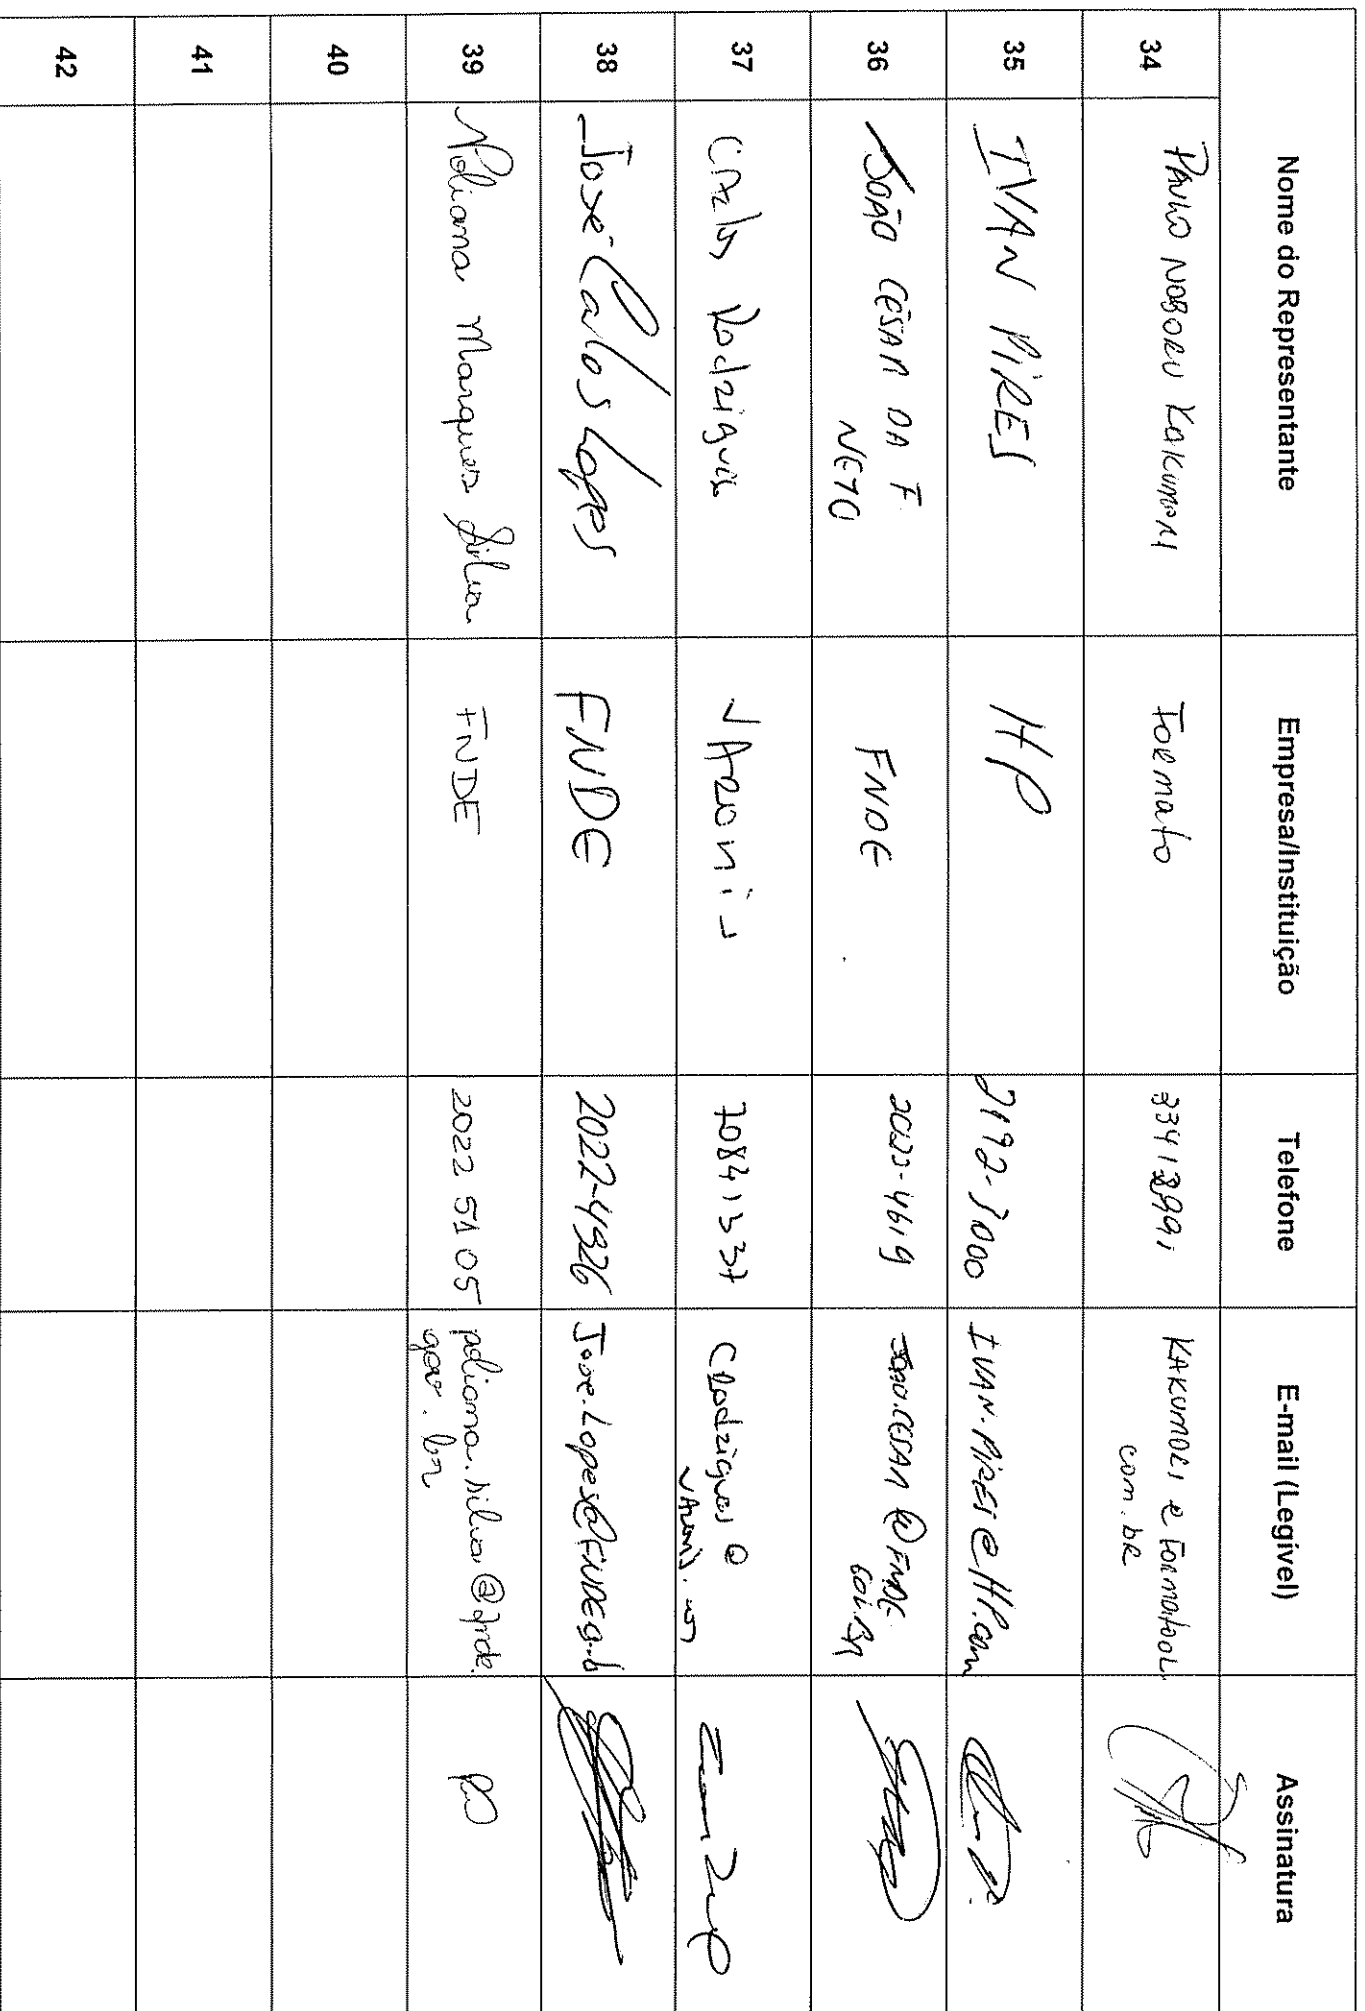 Nome do Representante Empresa/Instituição Telefone E-mail (Legível) Assinatura
34 PAULO NOBORU KAKUMORI Formato KAKUMORI e Formatool
com.br
35 IVAN PIRES HP 2192-3000 IVAN.PIRES@HP.com
36 JOÃO CÉSAR DA F FNDE 2022-4619 JOAO.CESAR@FNDE
NETO GOV.BR
37 Carlos Rodrigues 70841337 CRodrigues@
38 José Carlos Lopes FNDE 2022-4926 Jose.Lopes@FNDE
39 Poliana Marques Silva FNDE 2022 5105 poliana.silva@fnde.
gov.br
40
41
42